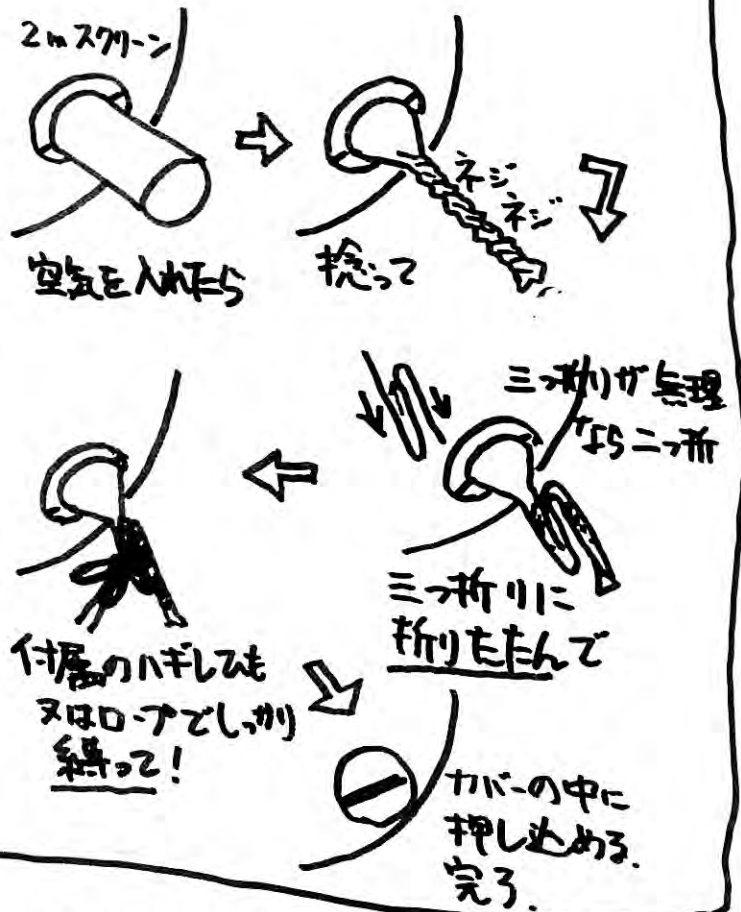 2mスクリーン
空気を入れたら
捻って
ネジ
ネジ
三つ折りが無理
なら二つ折
三つ折りに
折りたたんで
付属のハギレひも
又はロープでしっかり
縛って!
カバーの中に
押し込める.
完了.